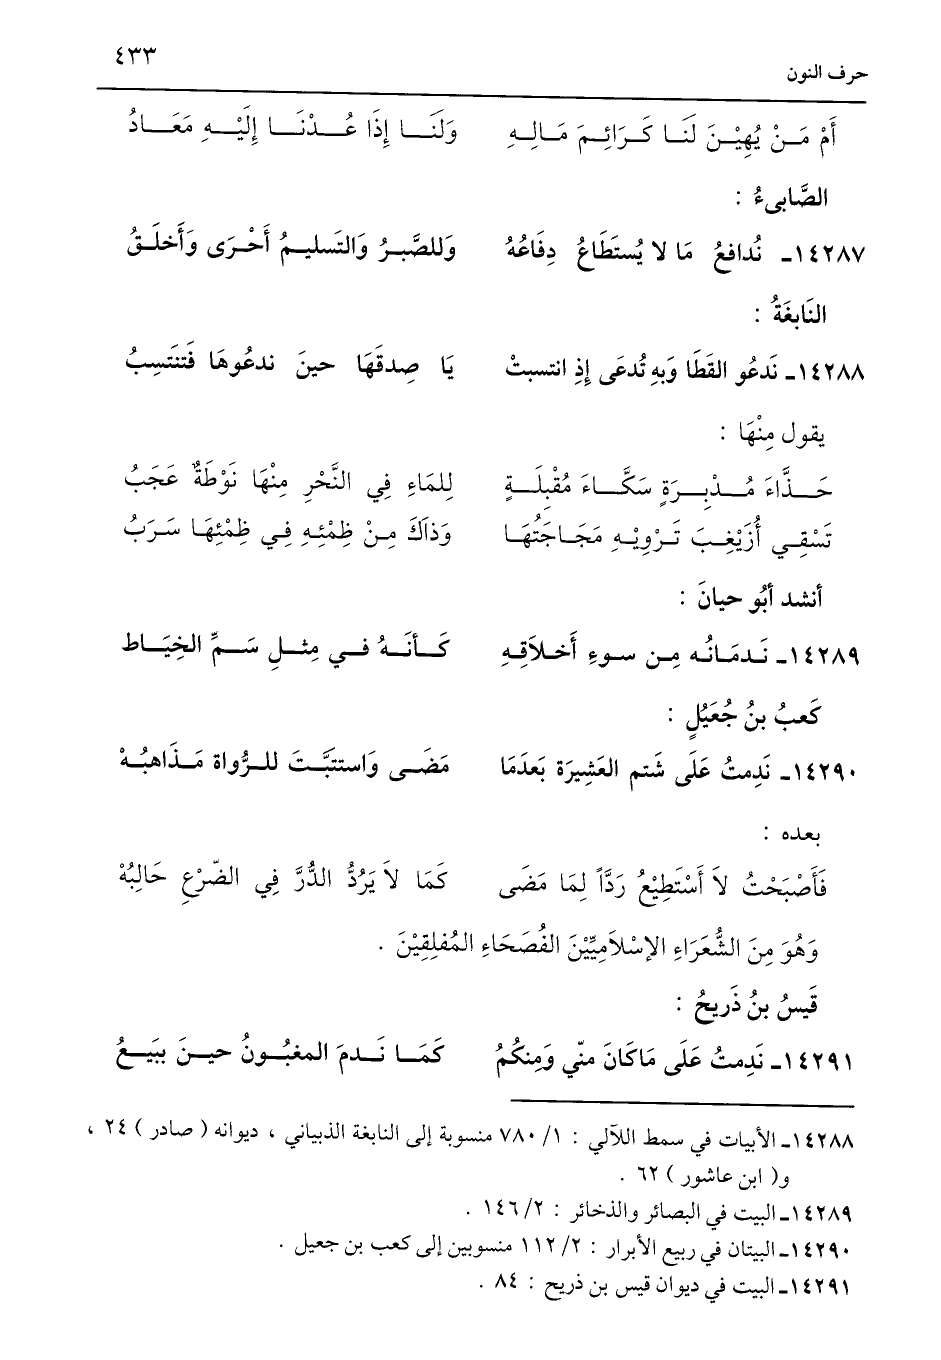 حرف النون ٤٣٣
أَمْ مَـنْ يُهِيْـنَ لَنَـا كَـرَائِـمَ مَـالِـهِ وَلَنَـا إِذَا عُـدْنَـا إِلَيْـهِ مَعَـادُ
الصَّابىءُ :
١٤٢٨٧ـ نُدافعُ مَا لا يُستَطَاعُ دِفَاعُهُ وَللصَّبـرُ وَالتَسليـمُ أَحْـرَى وَأَخلَـقُ
النَابغَةُ :
١٤٢٨٨ـ نَدعُو القَطَا وَبهِ تُدعَى إِذِ انتسبتْ يَا صِدقَهَا حينَ ندعُوهَا فَتَنتَسِبُ
يقول مِنْهَا :
حَـذَّاءَ مُـدْبِـرَةٍ سَكَّـاءَ مُقْبِلَـةٍ لِلمَاءِ فِي النَّحْرِ مِنْهَا نَوْطَةٌ عَجَبُ
تَسْقِـي أُزَيْغِـبَ تَـرْوِيْـهِ مَجَـاجَتُهَـا وَذَاكَ مِـنْ ظِمْئِـهِ فِـي ظِمْئِهَـا سَـرَبُ
أنشد أبُو حيانَ :
١٤٢٨٩ـ نَـدمَـانُـه مِـن سـوءِ أَخـلاَقِـهِ كَـأنَـهُ فـي مِثـلِ سَـمِّ الخِيَـاط
كَعبُ بنُ جُعَيْلٍ :
١٤٢٩٠ـ نَدِمتُ عَلَى شَتم العَشِيرَة بَعدَمَا مَضَـى وَاستتَبَّـتَ للـرُّواة مَـذَاهبُـهْ
بعده :
فَأَصْبَحْتُ لاَ أَسْتَطِيْعُ رَدَّاً لِمَا مَضَى كَمَا لاَ يَرُدُّ الدُّرَّ فِي الضّرْعِ حَالِبُهْ
وَهُوَ مِنَ الشُّعَرَاءِ الإسْلاَمِيِّيْنَ الفُصَحَاءِ المُفلِقِيْنَ .
قَيسُ بنُ ذَريحُ :
١٤٢٩١ـ نَدِمتُ عَلَى مَاكَانَ منّي وَمِنكُمُ كَمَـا نَـدمَ المغبُـونُ حيـنَ يبَيـعُ
١٤٢٨٨ـ الأبيات في سمط اللآلي : ١/ ٧٨٠ منسوبة إلى النابغة الذبياني ، ديوانه ( صادر ) ٢٤ ،
و( ابن عاشور ) ٦٢ .
١٤٢٨٩ـ البيت في البصائر والذخائر : ٢/ ١٤٦ .
١٤٢٩٠ـ البيتان في ربيع الأبرار : ٢/ ١١٢ منسوبين إلى كعب بن جعيل .
١٤٢٩١ـ البيت في ديوان قيس بن ذريح : ٨٤ .